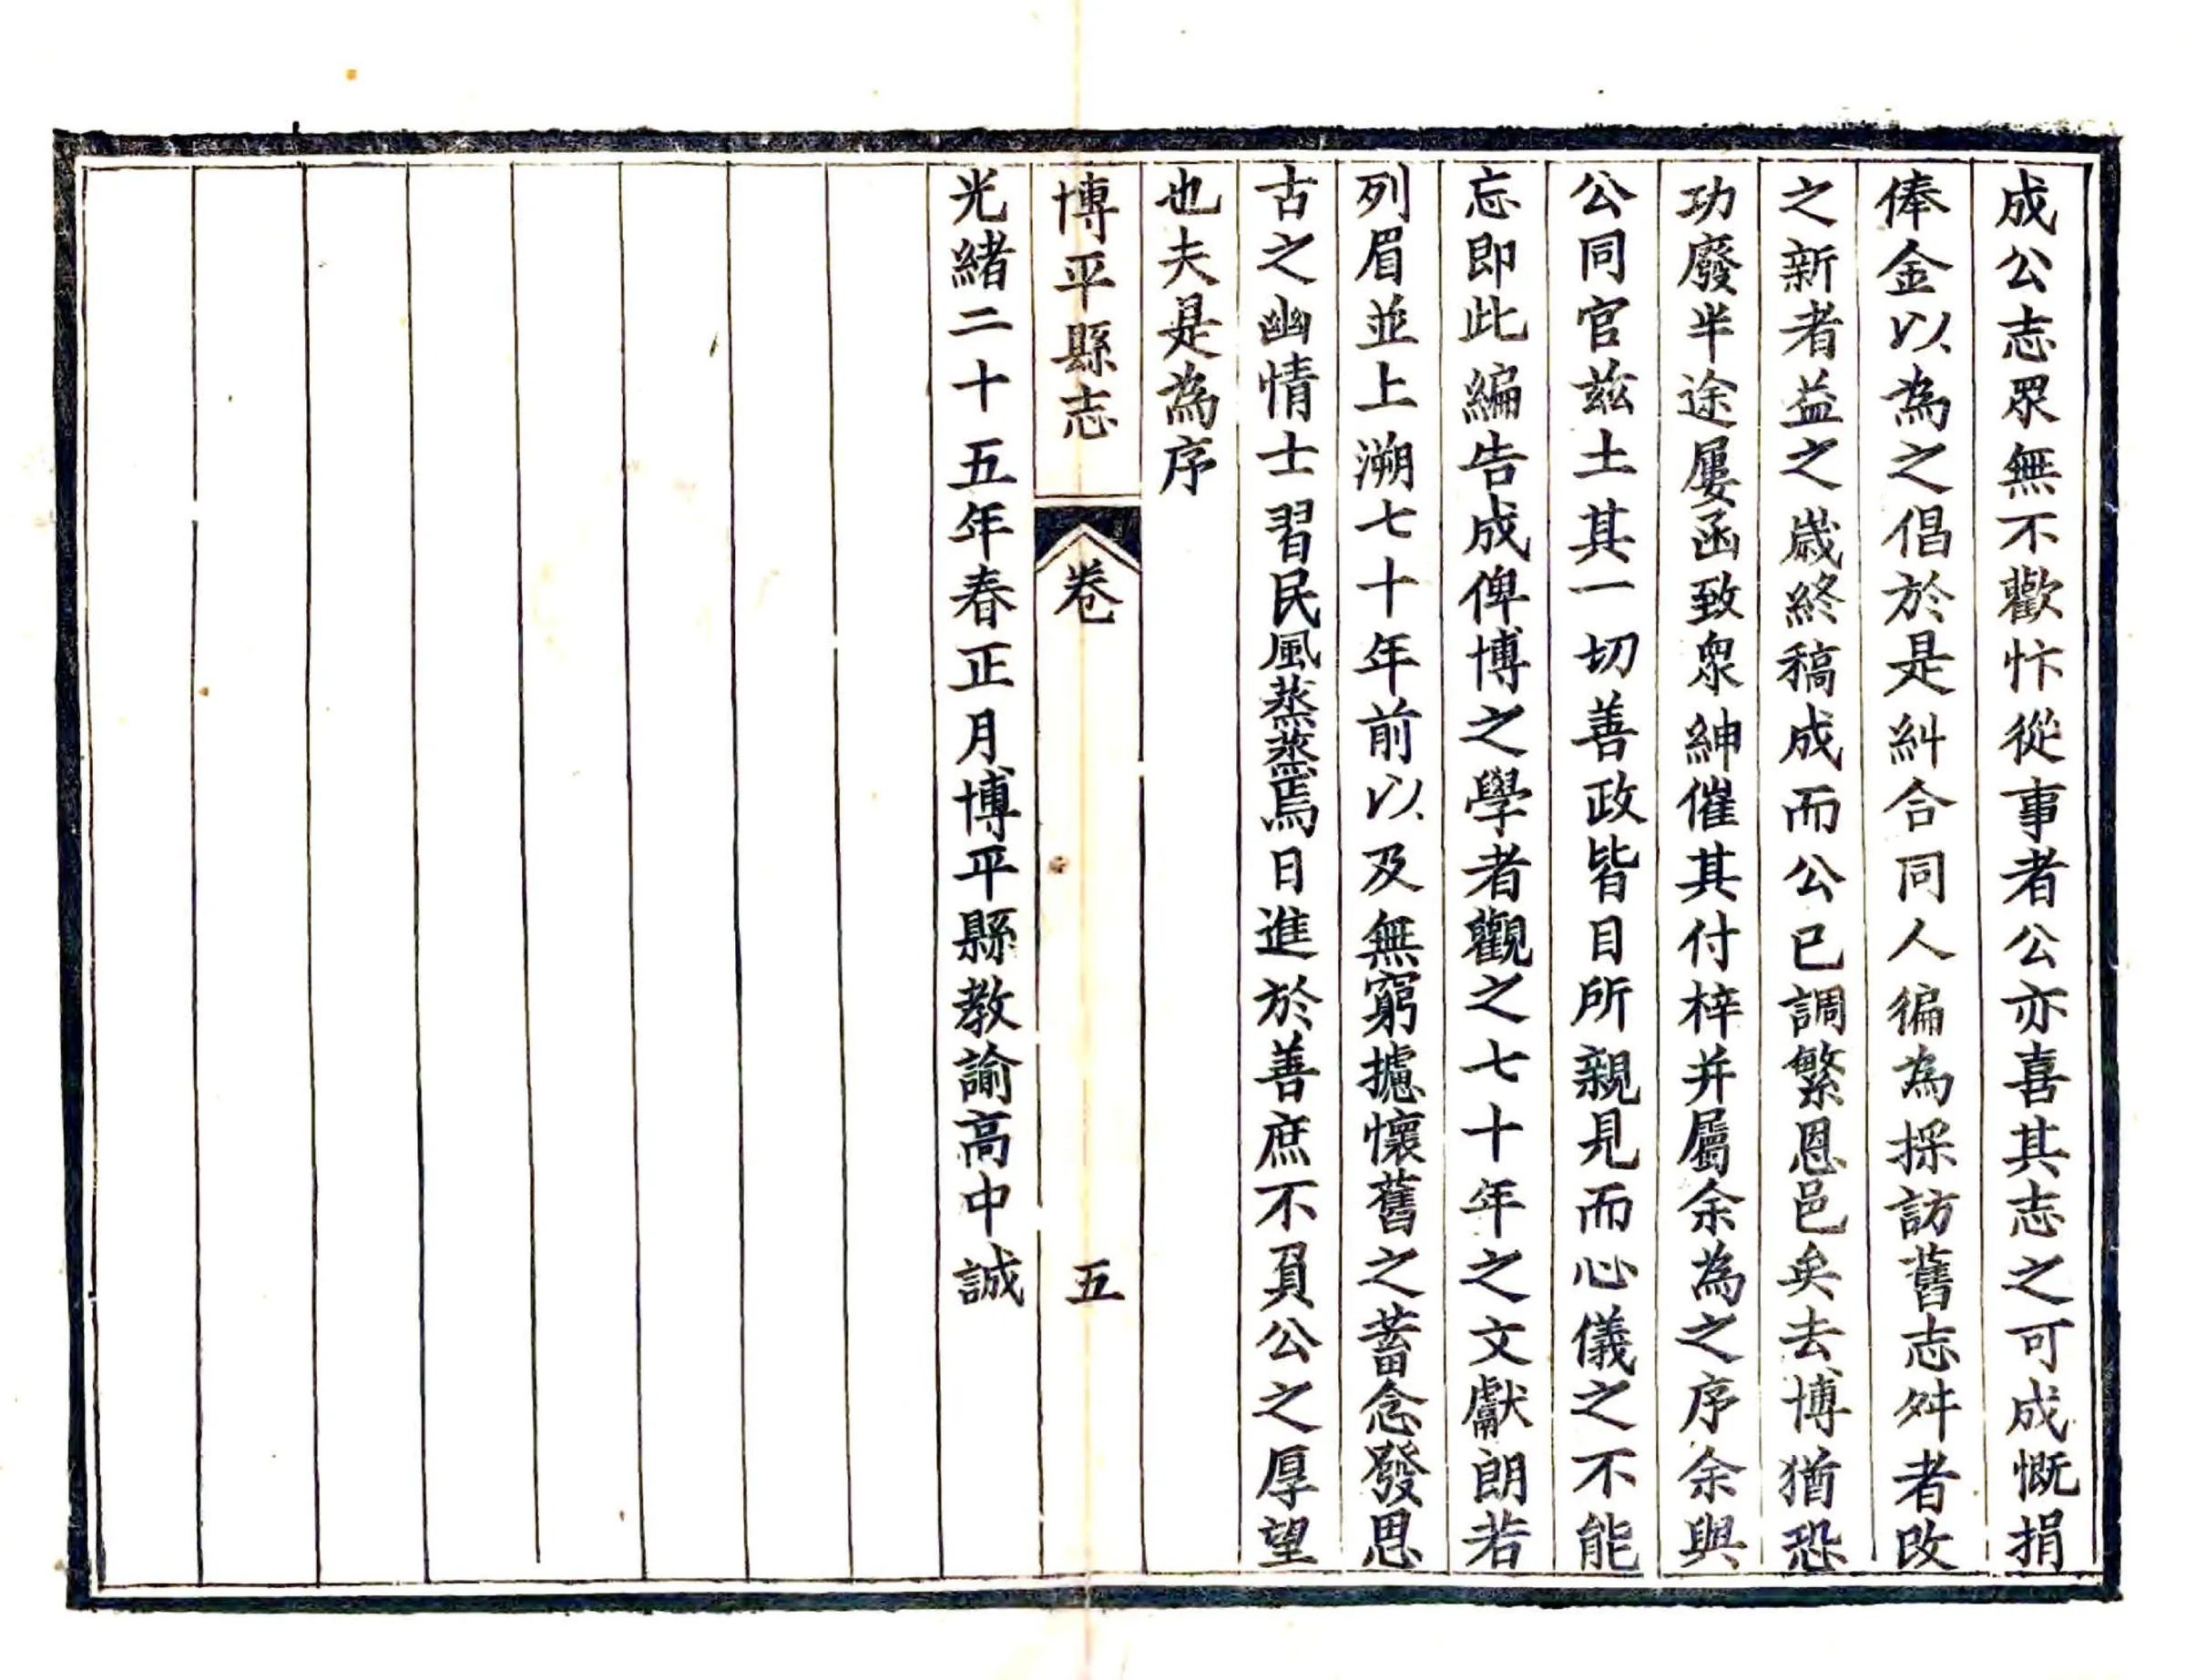 成公志眾無不歡忭從事者公亦喜其志之可成慨捐
俸金以為之倡於是糾合同人徧為採訪舊志舛者改
之新者益之歲終稿成而公已調繁恩邑矣去博猶恐
功廢半途屢函致眾紳催其付梓并屬余為之序余與
公同官兹土其一切善政皆目所親見而心儀之不能
忘即此編告成俾博之學者觀之七十年之文獻朗若
列眉並上溯七十年前以及無窮攄懷舊之蓄念發思
古之幽情士習民風蒸蒸焉日進於善庶不負公之厚望
也夫是為序
博平縣志
卷
五
光緒二十五年春正月博平縣教諭高中誠